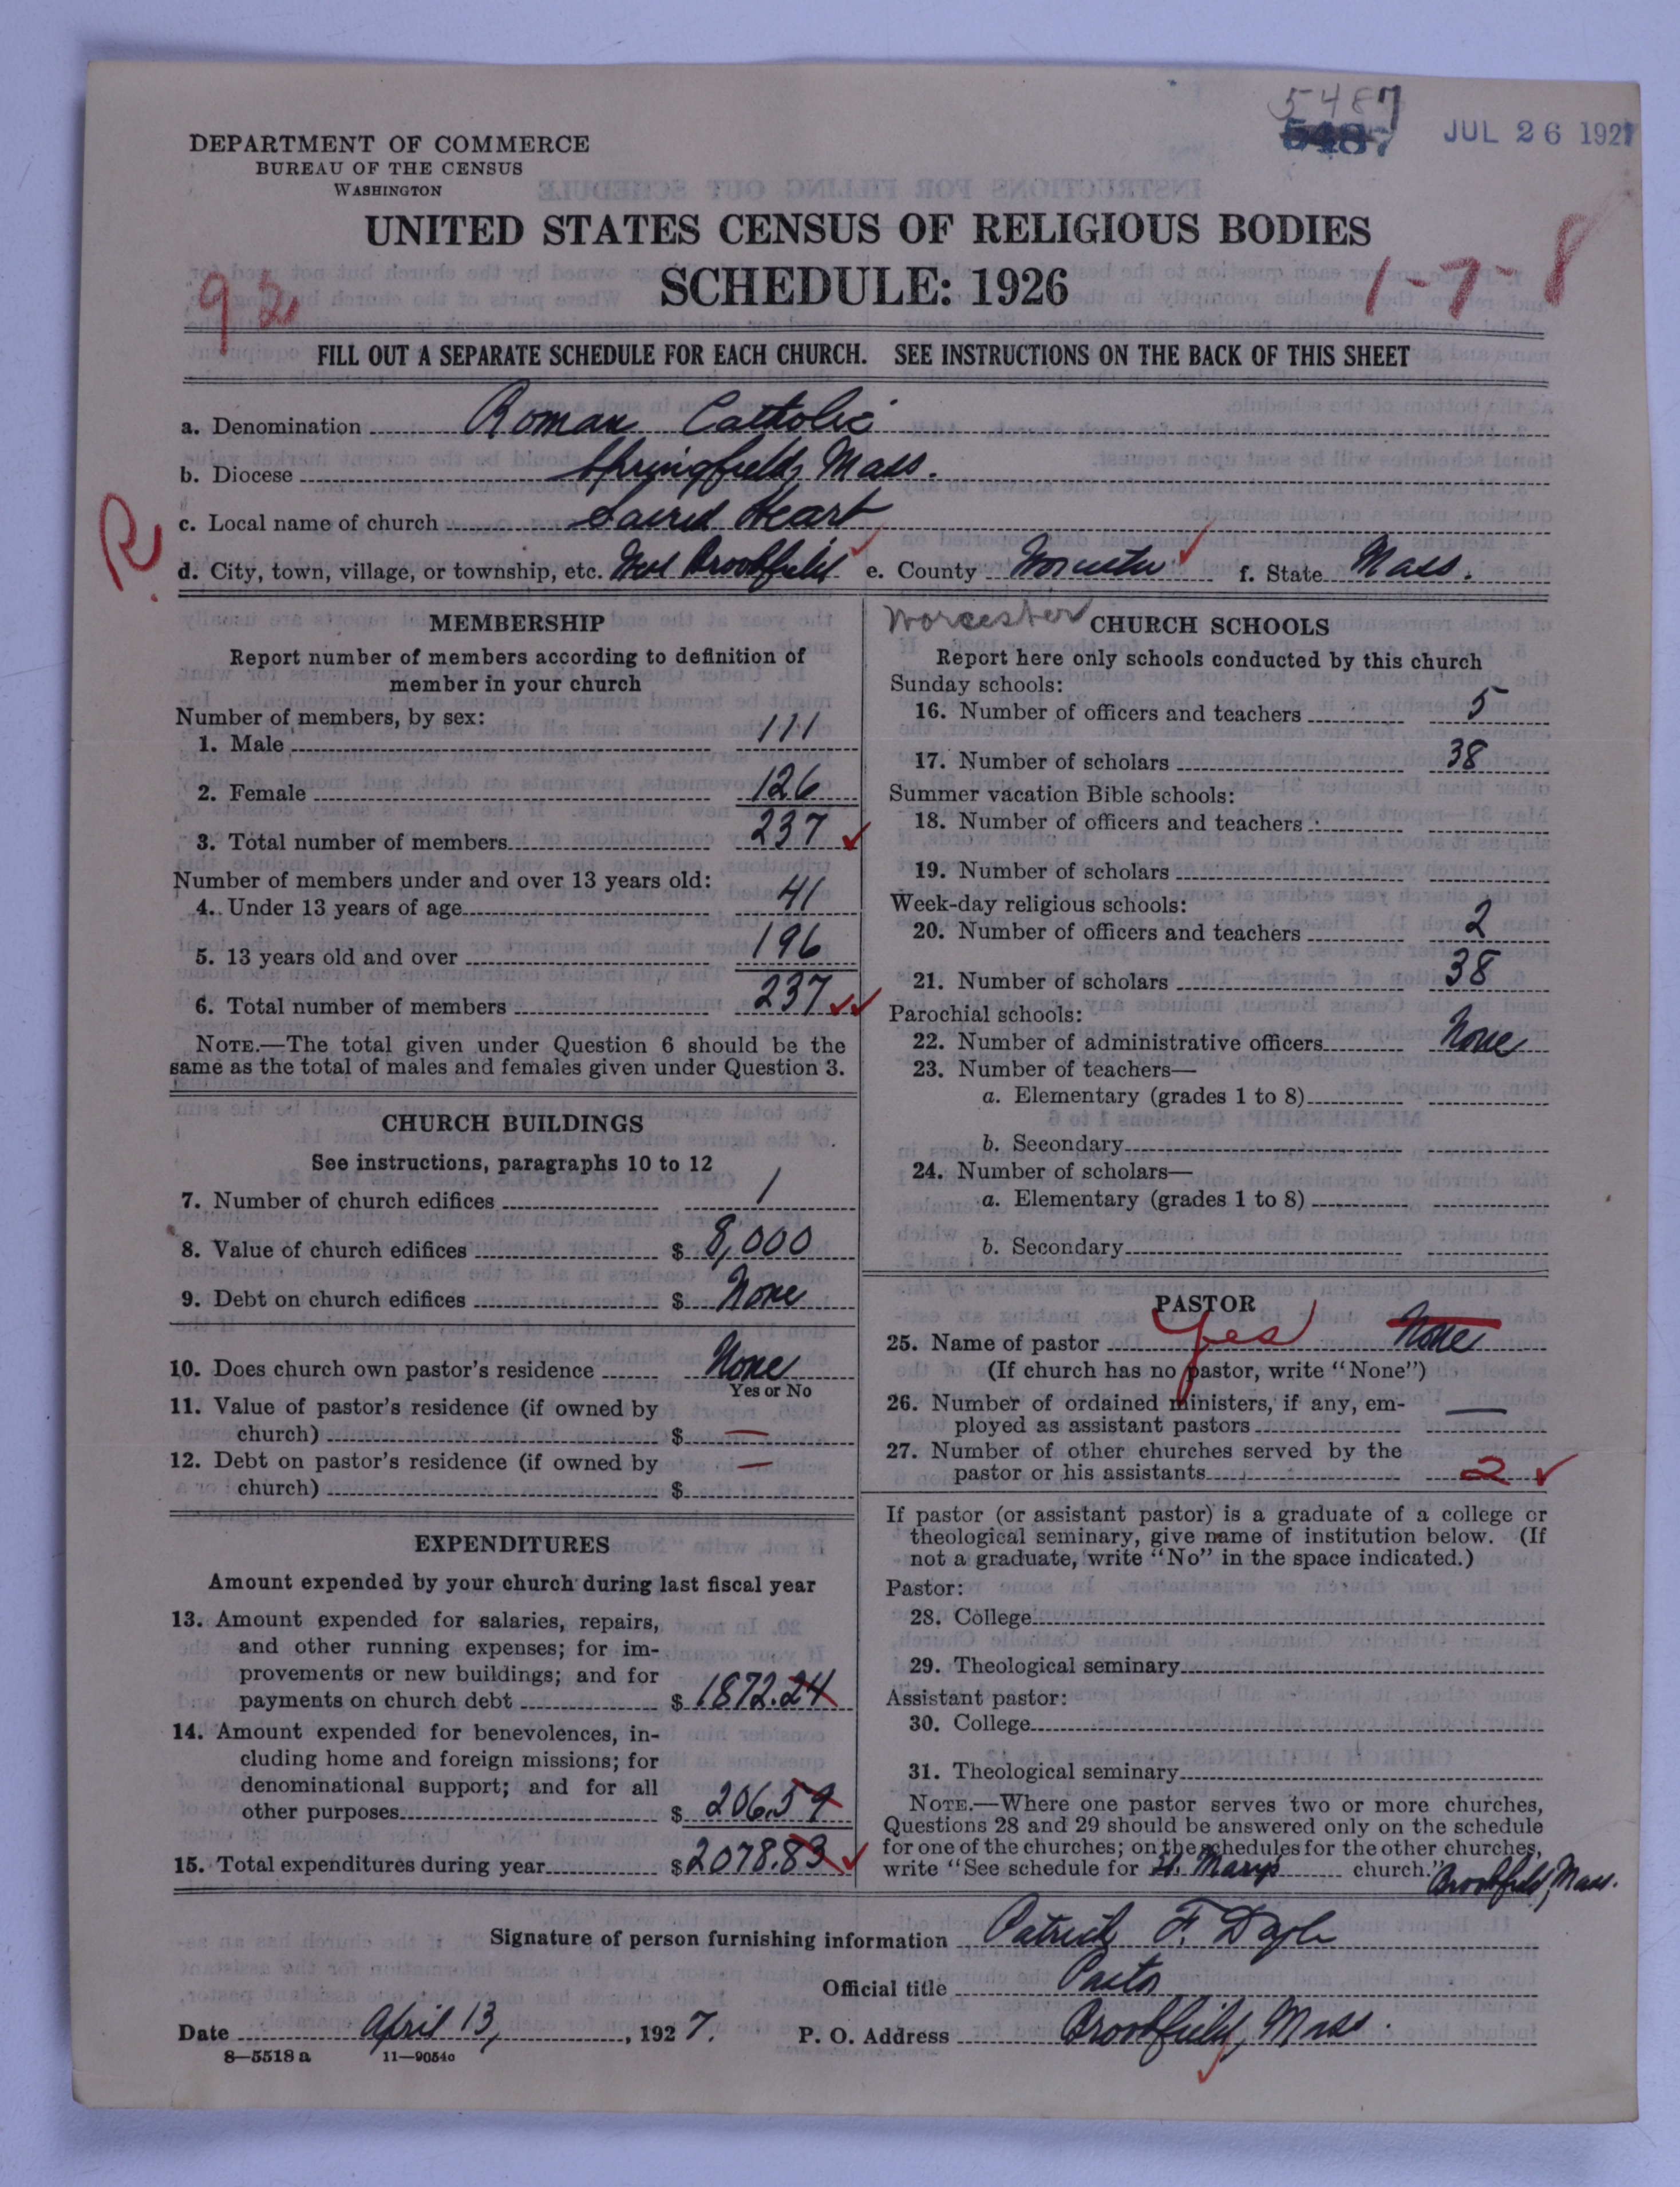 5487
5487 JUL 26 1927
DEPARTMENT OF COMMERCE
BUREAU OF THE CENSUS
WASHINGTON
UNITED STATES CENSUS OF RELIGIOUS BODIES
SCHEDULE: 1926
92
1-7-8
FILL OUT A SEPARATE SCHEDULE FOR EACH CHURCH. SEE INSTRUCTIONS ON THE BACK OF THIS SHEET
a. Denomination Roman Catholic
b. Diocese Springfield, Mass.
c. Local name of church Sacred Heart
R.
d. City, town, village, or township, etc. West Brookfield e. County Worcester f. State Mass.
Worcester
MEMBERSHIP
Report number of members according to definition of
member in your church
Number of members, by sex:
1. Male 111
2. Female 126
3. Total number of members 237
Number of members under and over 13 years old:
4. Under 13 years of age 41
5. 13 years old and over 196
6. Total number of members 237
NOTE.—The total given under Question 6 should be the
same as the total of males and females given under Question 3.
CHURCH BUILDINGS
See instructions, paragraphs 10 to 12
7. Number of church edifices 1
8. Value of church edifices $ 8,000
9. Debt on church edifices $ None
10. Does church own pastor's residence None
Yes or No
11. Value of pastor's residence (if owned by
church) $ —
12. Debt on pastor's residence (if owned by
church) $ —
EXPENDITURES
Amount expended by your church during last fiscal year
13. Amount expended for salaries, repairs,
and other running expenses; for im-
provements or new buildings; and for
payments on church debt $ 1872.24
14. Amount expended for benevolences, in-
cluding home and foreign missions; for
denominational support; and for all
other purposes $ 206.59
15. Total expenditures during year $ 2078.83
CHURCH SCHOOLS
Report here only schools conducted by this church
Sunday schools:
16. Number of officers and teachers 5
17. Number of scholars 38
Summer vacation Bible schools:
18. Number of officers and teachers
19. Number of scholars
Week-day religious schools:
20. Number of officers and teachers 2
21. Number of scholars 38
Parochial schools:
22. Number of administrative officers None
23. Number of teachers—
a. Elementary (grades 1 to 8)
b. Secondary
24. Number of scholars—
a. Elementary (grades 1 to 8)
b. Secondary
PASTOR
25. Name of pastor yes None
(If church has no pastor, write "None")
26. Number of ordained ministers, if any, em-
ployed as assistant pastors —
27. Number of other churches served by the
pastor or his assistants 2
If pastor (or assistant pastor) is a graduate of a college or
theological seminary, give name of institution below. (If
not a graduate, write "No" in the space indicated.)
Pastor:
28. College
29. Theological seminary
Assistant pastor:
30. College
31. Theological seminary
NOTE.—Where one pastor serves two or more churches,
Questions 28 and 29 should be answered only on the schedule
for one of the churches; on the schedules for the other churches,
write "See schedule for St. Marys church." Brookfield, Mass.
Signature of person furnishing information Patrick F. Doyle
Official title Pastor
Date April 13, 1927. P. O. Address Brookfield, Mass.
8—5518 a 11—9054c